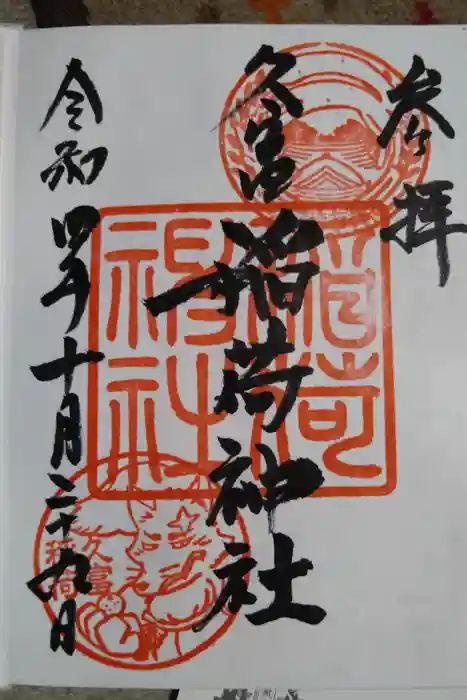 参拝
久富稲荷神社
稲荷
神社
令和四年十月二十九日
久富
稲荷